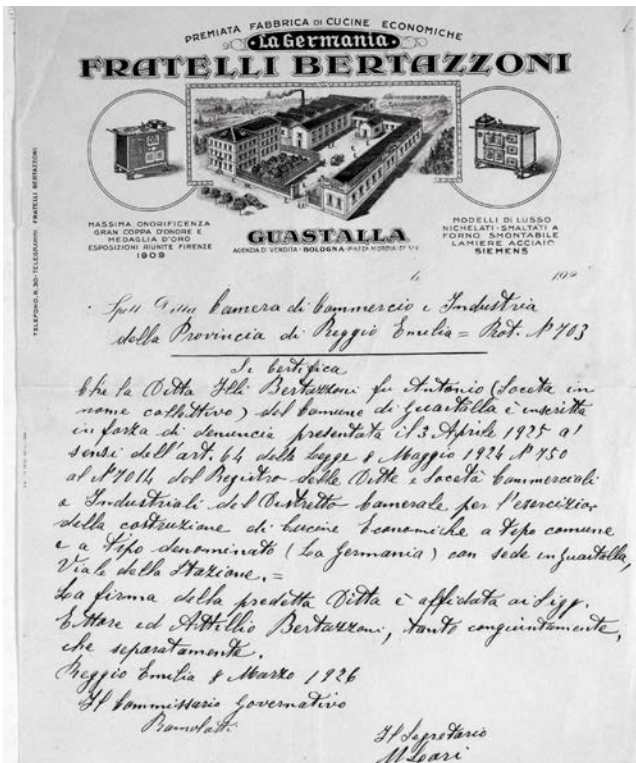 PREMIATA FABBRICA DI CUCINE ECONOMICHE
La Germania
FRATELLI BERTAZZONI
MASSIMA ONORIFICENZA
GRAN COPPA D'ONORE E
MEDAGLIA D'ORO
ESPOSIZIONI RIUNITE FIRENZE
1909
GUASTALLA
AGENZIA DI VENDITA - BOLOGNA - PIAZZA
MODELLI DI LUSSO
NICHELATI - SMALTATI A
FORNO SMONTABILE
LAMIERE ACCIAIO
SIEMENS
TELEFONO, N. 30 - TELEGRAMMI FRATELLI BERTAZZONI
li 192
Spett Ditta Camera di Commercio e Industria
della Provincia di Reggio Emilia = Prot. Nº 703
Si Certifica
Che la Ditta Flli Bertazzoni fu Antonio (Societa in
nome collettivo) del Comune di Guastalla è inscritta
in forza di denuncia presentata il 3 Aprile 1925 a'
sensi dell'art. 64 della Legge 8 Maggio 1924 Nº 750
al Nº 7014 del Registro delle Ditte e Società Commerciali
e Industriali del Distretto Camerale per l'esercizio
della costruzione di Cucine Economiche a tipo comune
e a tipo denominato (La Germania) con sede in Guastalla,
Viale della Stazione. =
La firma della predetta Ditta è affidata ai Sigg.
Ettore ed Attillio Bertazzoni, tanto congiuntamente,
che separatamente.
Reggio Emilia 8 Marzo 1926
Il Commissario Governativo
Il Segretario